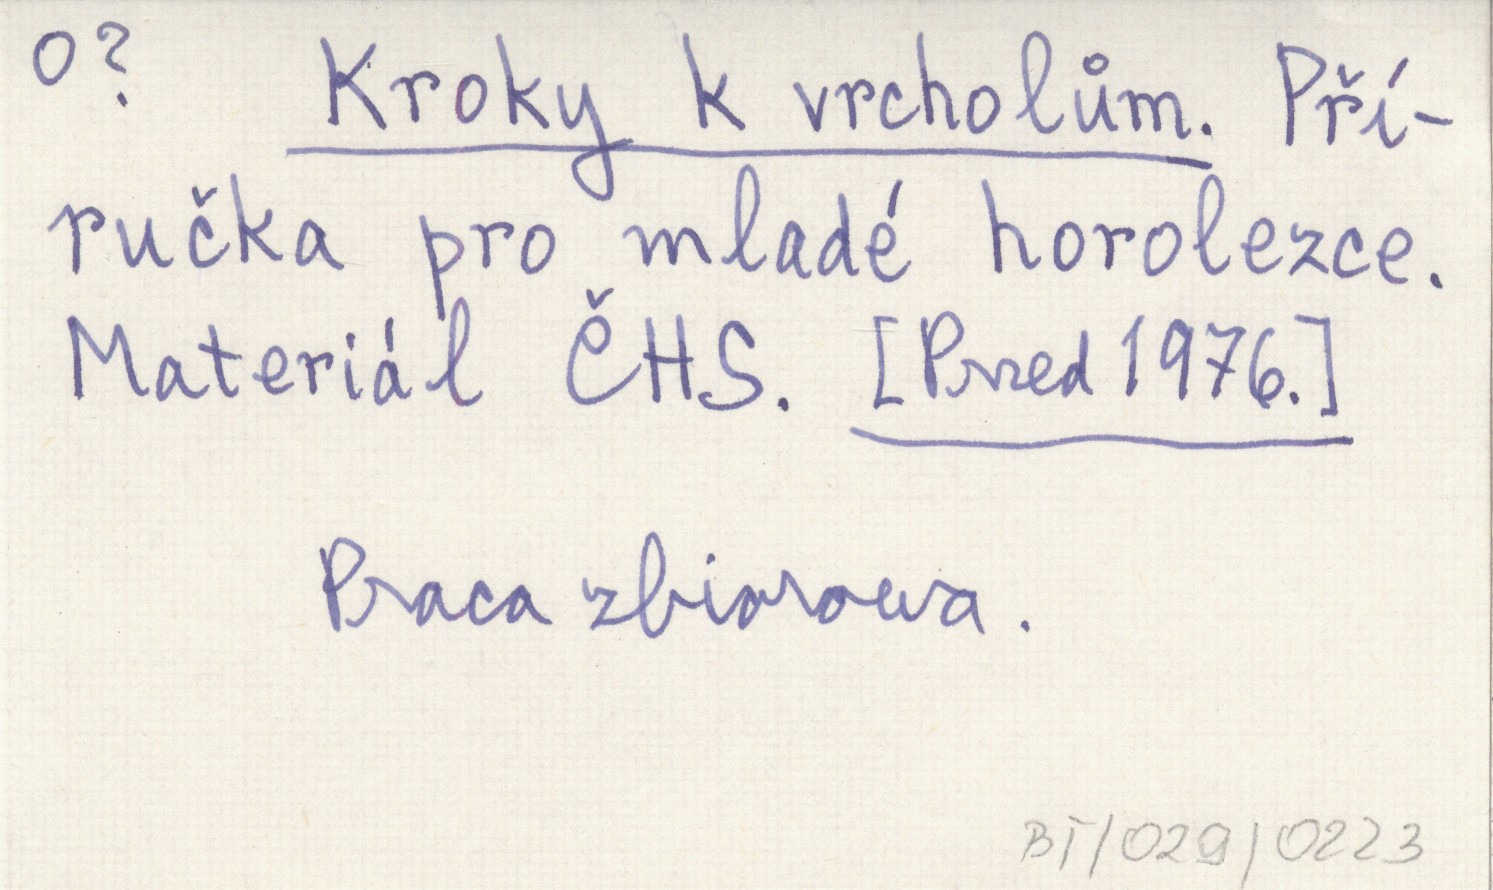 O? Kroky k vrcholům. Pří-
ručka pro mladé horolezce.
Materiál ČHS. [Przed 1976.]
Praca zbiorowa.
BT/029/0223